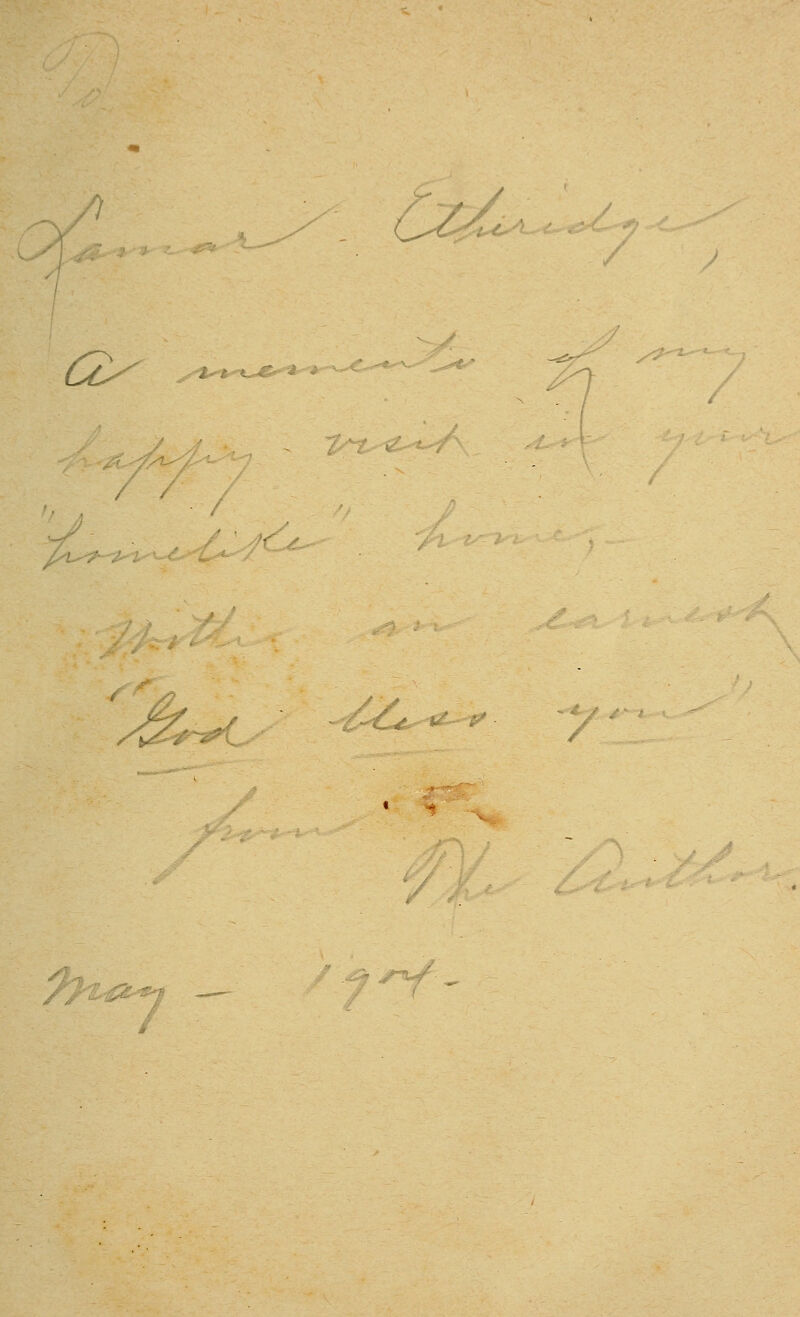 To
Lamar Etheridge,
A memento of my
happy visit in your
"homelike" home,-
With an earnest
"God bless you"
from
The Author.
May - 1904.